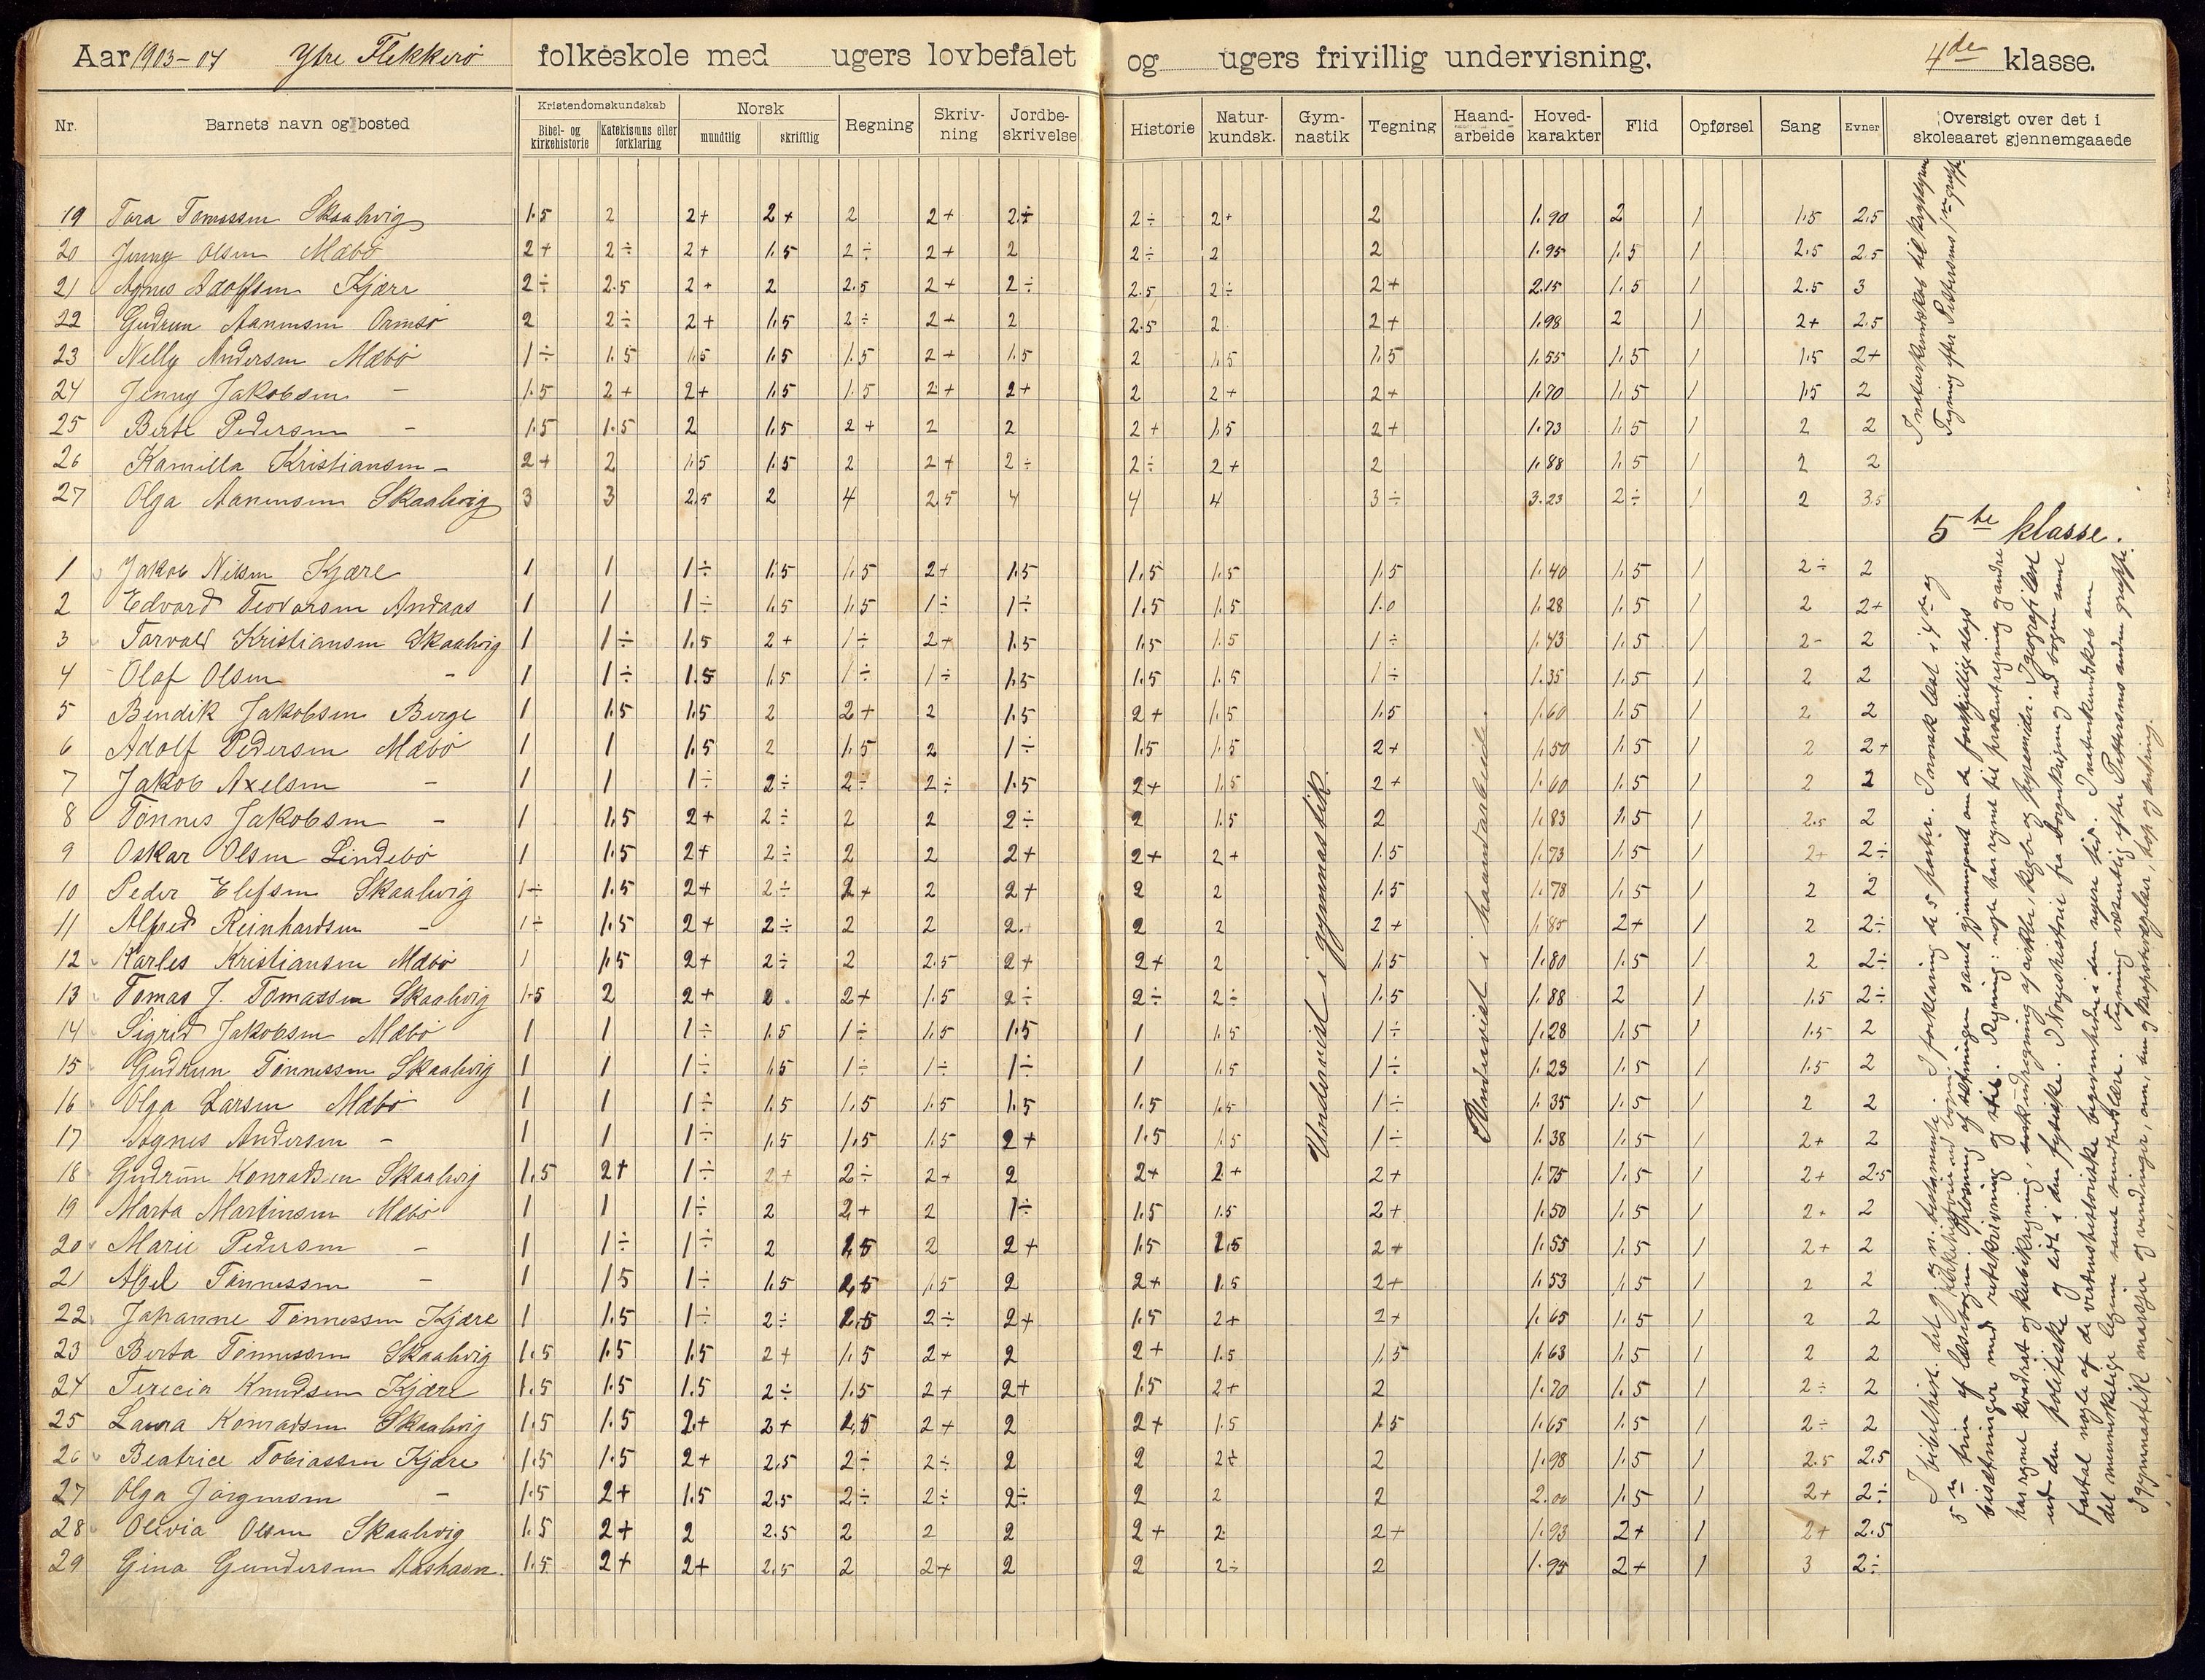 Aar 1903-04 Ytre Flekkerö folkeskole med ugers lovbefalet og ugers frivillig undervisning. 4de klasse.
Nr. Barnets navn og bosted Kristendomskundskab Bibel- og kirkehistorie Katekismus eller forklaring Norsk mundtlig skriftlig Regning Skriv-ning Jordbe-skrivelse Historie Natur-kundsk. Gym-nastik Tegning Haand-arbeide Hoved-karakter Flid Opførsel Sang Evner Oversigt over det i skoleaaret gjennemgaaede
19 Tora Tomassen Skaalevig 1.5 2 2+ 2+ 2 2+ 2÷ 2÷ 2+ 2 1.90 2 1 1.5 2.5
20 Jenny Olsen Mæbö 2+ 2÷ 2+ 1.5 2÷ 2+ 2 2÷ 2 2 1.95 1.5 1 2.5 2.5
21 Agnes Adolfsen Kjære 2÷ 2.5 2+ 2 2.5 2+ 2÷ 2.5 2÷ 2+ 2.15 1.5 1 2.5 3
22 Gudrun Aanensen Ormsö 2 2÷ 2+ 1.5 2÷ 2+ 2 2.5 2 2+ 1.98 2 1 2+ 2.5
23 Nelly Andersen Mæbö 1÷ 1.5 1.5 1.5 1.5 2+ 1.5 2 1.5 1.5 1.55 1.5 1 1.5 2+
24 Jenny Jakobsen - 1.5 2+ 2+ 1.5 1.5 2+ 2+ 2 2+ 2+ 1.70 1.5 1 1.5 2
25 Berte Pedersen - 1.5 1.5 2 1.5 2+ 2 2 2+ 1.5 2+ 1.73 1.5 1 2 2
26 Kamilla Kristiansen - 2+ 2 1.5 1.5 2 2+ 2÷ 2÷ 2+ 2 1.88 1.5 1 2 2
27 Olga Aanensen Skaalevig 3 3 2.5 2 4 2.5 4 4 4 3÷ 3.23 2÷ 1 2 3.5
I naturkundskab til krybdyrene
Tegning efter Pettersens 1ste gruppe.
5te klasse.
1 Jakob Nilsen Kjære 1 1 1÷ 1.5 1.5 2+ 1.5 1.5 1.5 1.5 1.40 1.5 1 2÷ 2
2 Edvard Teodorsen Andaas 1 1 1÷ 1.5 1.5 1÷ 1÷ 1.5 1.5 1.0 1.28 1.5 1 2 2+
3 Torvald Kristiansen Skaalevig 1 1÷ 1.5 2+ 1÷ 2+ 1.5 1.5 1.5 1÷ 1.43 1.5 1 2- 2
4 Olaf Olsen - 1 1÷ 1.5 1.5 1÷ 1÷ 1.5 1.5 1.5 1÷ 1.35 1.5 1 2 2
5 Bendik Jakobsen Berge 1 1.5 1.5 2 2+ 2 1.5 2+ 1.5 1.5 1.60 1.5 1 2 2
6 Adolf Pedersen Mæbö 1 1 1.5 2 1.5 2 1÷ 1.5 1.5 2+ 1.50 1.5 1 2 2+
7 Jakob Axelsen - 1 1 1÷ 2÷ 2÷ 2÷ 1.5 2+ 1.5 2+ 1.60 1.5 1 2 2
8 Tönnes Jakobsen - 1 1.5 2+ 2÷ 2 2 2÷ 2 1.5 2 1.83 1.5 1 2.5 2
9 Oskar Olsen Lindebö 1 1.5 2+ 2÷ 2 2 2+ 2+ 2+ 1.5 1.73 1.5 1 2+ 2÷
10 Peder Elefsen Skaalevig 1÷ 1.5 2+ 2÷ 2+ 2 2+ 2 2 1.5 1.78 1.5 1 2 2
11 Alfred Reinhardsen - 1÷ 1.5 2+ 2÷ 2 2 2. 2 2 2+ 1.85 2+ 1 2 2÷
12 Karles Kristiansen Mæbö 1 1.5 2+ 2÷ 2 2.5 2+ 2+ 2 1.5 1.80 1.5 1 2 2÷
13 Tomas J. Tomassen Skaalevig 1.5 2 2+ 2. 2+ 1.5 2÷ 2÷ 2÷ 1.5 1.88 2 1 1.5 2÷
14 Sigrid Jakobsen Mæbö 1 1 1÷ 1.5 1÷ 1.5 1.5 1 1.5 1÷ 1.28 1.5 1 1.5 2
15 Gudrun Tönnessen Skaalevig 1 1 1÷ 1.5 1÷ 1÷ 1÷ 1 1.5 1÷ 1.23 1.5 1 1.5 2
16 Olga Larsen Mæbö 1 1 1÷ 1.5 1.5 1.5 1.5 1.5 1.5 1÷ 1.35 1.5 1 2 2
17 Agnes Andersen - 1 1 1÷ 1.5 1.5 1.5 2+ 1.5 1.5 1÷ 1.38 1.5 1 2+ 2
18 Gudrun Konradsen Skaalevig 1.5 2+ 1÷ 2+ 2÷ 2+ 2 2+ 2+ 2+ 1.75 1.5 1 2+ 2.5
19 Marta Martinsen Mæbö 1 1 1÷ 2 2+ 2 1÷ 1.5 1.5 2+ 1.50 1.5 1 2+ 2
20 Marie Pedersen - 1 1÷ 1÷ 2 1.5 2 2+ 1.5 1.5 2+ 1.55 1.5 1 2+ 2
21 Abel Tönnessen - 1 1.5 1÷ 1.5 1.5 1.5 2 2+ 1.5 2+ 1.53 1.5 1 2 2
22 Johanne Tönnessen Kjære 1 1.5 1÷ 2÷ 1.5 2÷ 2+ 1.5 2+ 2+ 1.65 1.5 1 2 2
23 Berta Tönnessen Skaalevig 1.5 1.5 1.5 2+ 1.5 2+ 2 2+ 1.5 1.5 1.63 1.5 1 2 2
24 Terecia Knudsen Kjære 1.5 1.5 1.5 2÷ 1.5 2+ 2+ 1.5 2+ 2 1.70 1.5 1 2÷ 2
25 Laura Konradsen Skaalevig 1.5 1.5 2+ 2+ 1.5 2+ 2 2+ 1.5 1.5 1.65 1.5 1 2÷ 2
26 Beatrice Tobiassen Kjære 1.5 1.5 2+ 2.5 2÷ 2÷ 2 2 2+ 2 1.98 1.5 1 2.5 2.5
27 Olga Jörgensen - 1.5 2+ 1.5 2.5 2÷ 2÷ 2÷ 2 2 2 2.00 1.5 1 2+ 2÷
28 Olevia Olsen Skaalevig 1.5 2+ 2 2.5 2 2 2 2+ 2 2+ 1.93 2+ 1 2+ 2.5
29 Gina Gundersen Aashavn 1.5 2+ 2+ 2.5 2 2+ 2 2 2÷ 2 1.95 2+ 1 3 2÷
Undervist i gymnastik.
Undervist i haandarbeide.
I bibelhist. det g. og n. testamente. I forklaring de 5 parter. I norsk læst i 4de og
kirkehistorien ud bogen.
5te trin af læsebogen. Oplösning af sætninger samt gjennemgaaet om de forskjellige slags
bisætninger med retskrivning og stil. Regning: nogle har regnet til procentregning og andre
har regnet kvadrat og kubikregning, af cirkler, kegler og pyramider. I geografi læst
ud den politiske og lidt i den fysiske. I Norgeshistorie fra borgerkrigen og ud bogen samt
fortal nogle af de verdenshistoriske begivenheder i den nyere tid. I naturkundskab om
det menneskelige legeme samt sundhedslære. Tegning væsentlig efter Pettersens anden gruppe.
I gymnastik marsjer og vendinger, arm, ben og kropsbevægelser, hop og